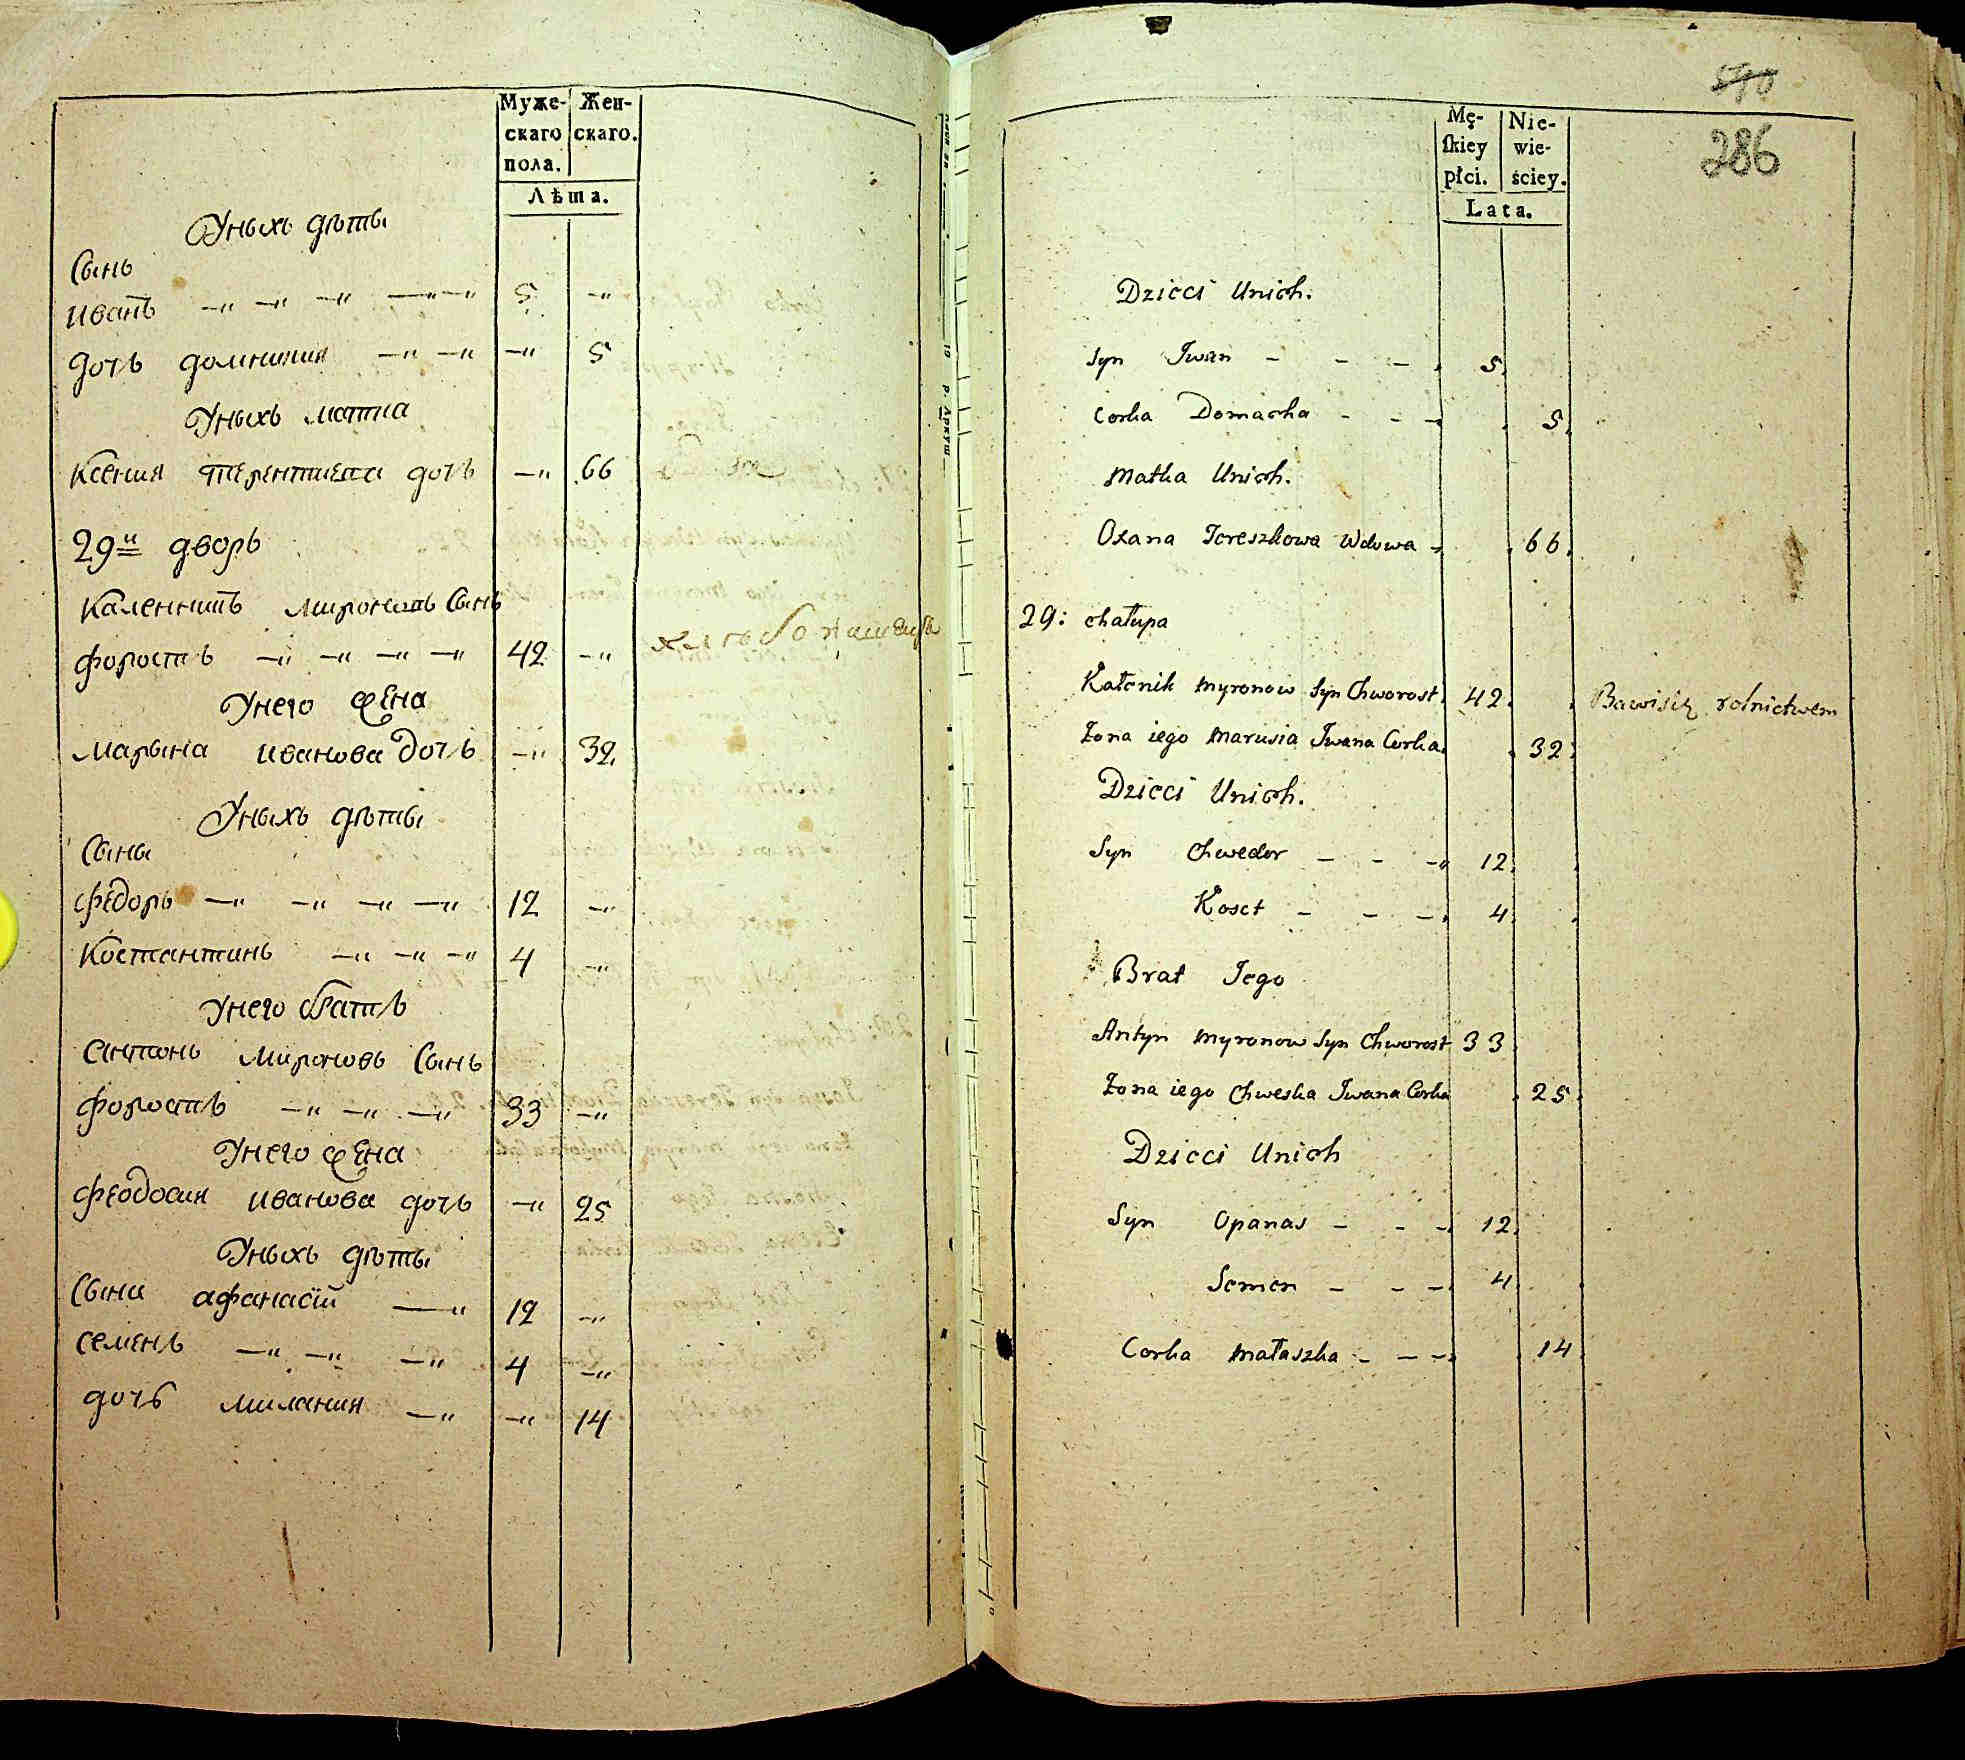 Муже- Жен-
скаго скаго.
пола.
Лѣта.
Уныхъ дѣты
Сынъ
Иванъ —„ —„ —„ —„ —„ 5 —„
дочъ домникия —„ —„ —„ 5
Уныхъ матка
Ксения терентиева дочъ —„ 66
29й дворъ
Каленникъ мироновъ Сынъ
форостъ —„ —„ —„ —„ 42 —„ хлѣбопашецъ
Унего жена
марына иванова дочъ —„ 32
Уныхъ дѣты
Сыны
федоръ —„ —„ —„ —„ 12 —„
Костантинъ —„ —„ —„ 4 —„
Унего братъ
антонъ мироновъ Сынъ
форостъ —„ —„ —„ 33 —„
Унего жена
феодосия иванова дочъ —„ 25
Уныхъ дѣты
Сыны афанасій —„ 12 —„
семенъ —„ —„ —„ 4 —„
дочъ милания —„ —„ 14
Аркуш
286
Mę- Nie-
skiey wie-
płci. ściey.
Lata.
Dzieci Unich.
Syn Iwan - - - 5.
Corka Domacha - - - 5.
Matka Unich.
Oxana Tereszkowa Wdowa - 66.
29: chałupa
Kałenik Myronow Syn Chworost. 42. Bawisię rolnictwem
Żona iego Marusia Iwana Corka. 32.
Dzieci Unich.
Syn Chwedor - - - 12.
Kost - - - 4.
Brat Iego
Antyn Myronow Syn Chworost 33.
Żona iego Chweska Iwana Corka 25.
Dzieci Unich
Syn Opanas - - - 12.
Semen - - - 4.
Corka Małaszka - - - 14.